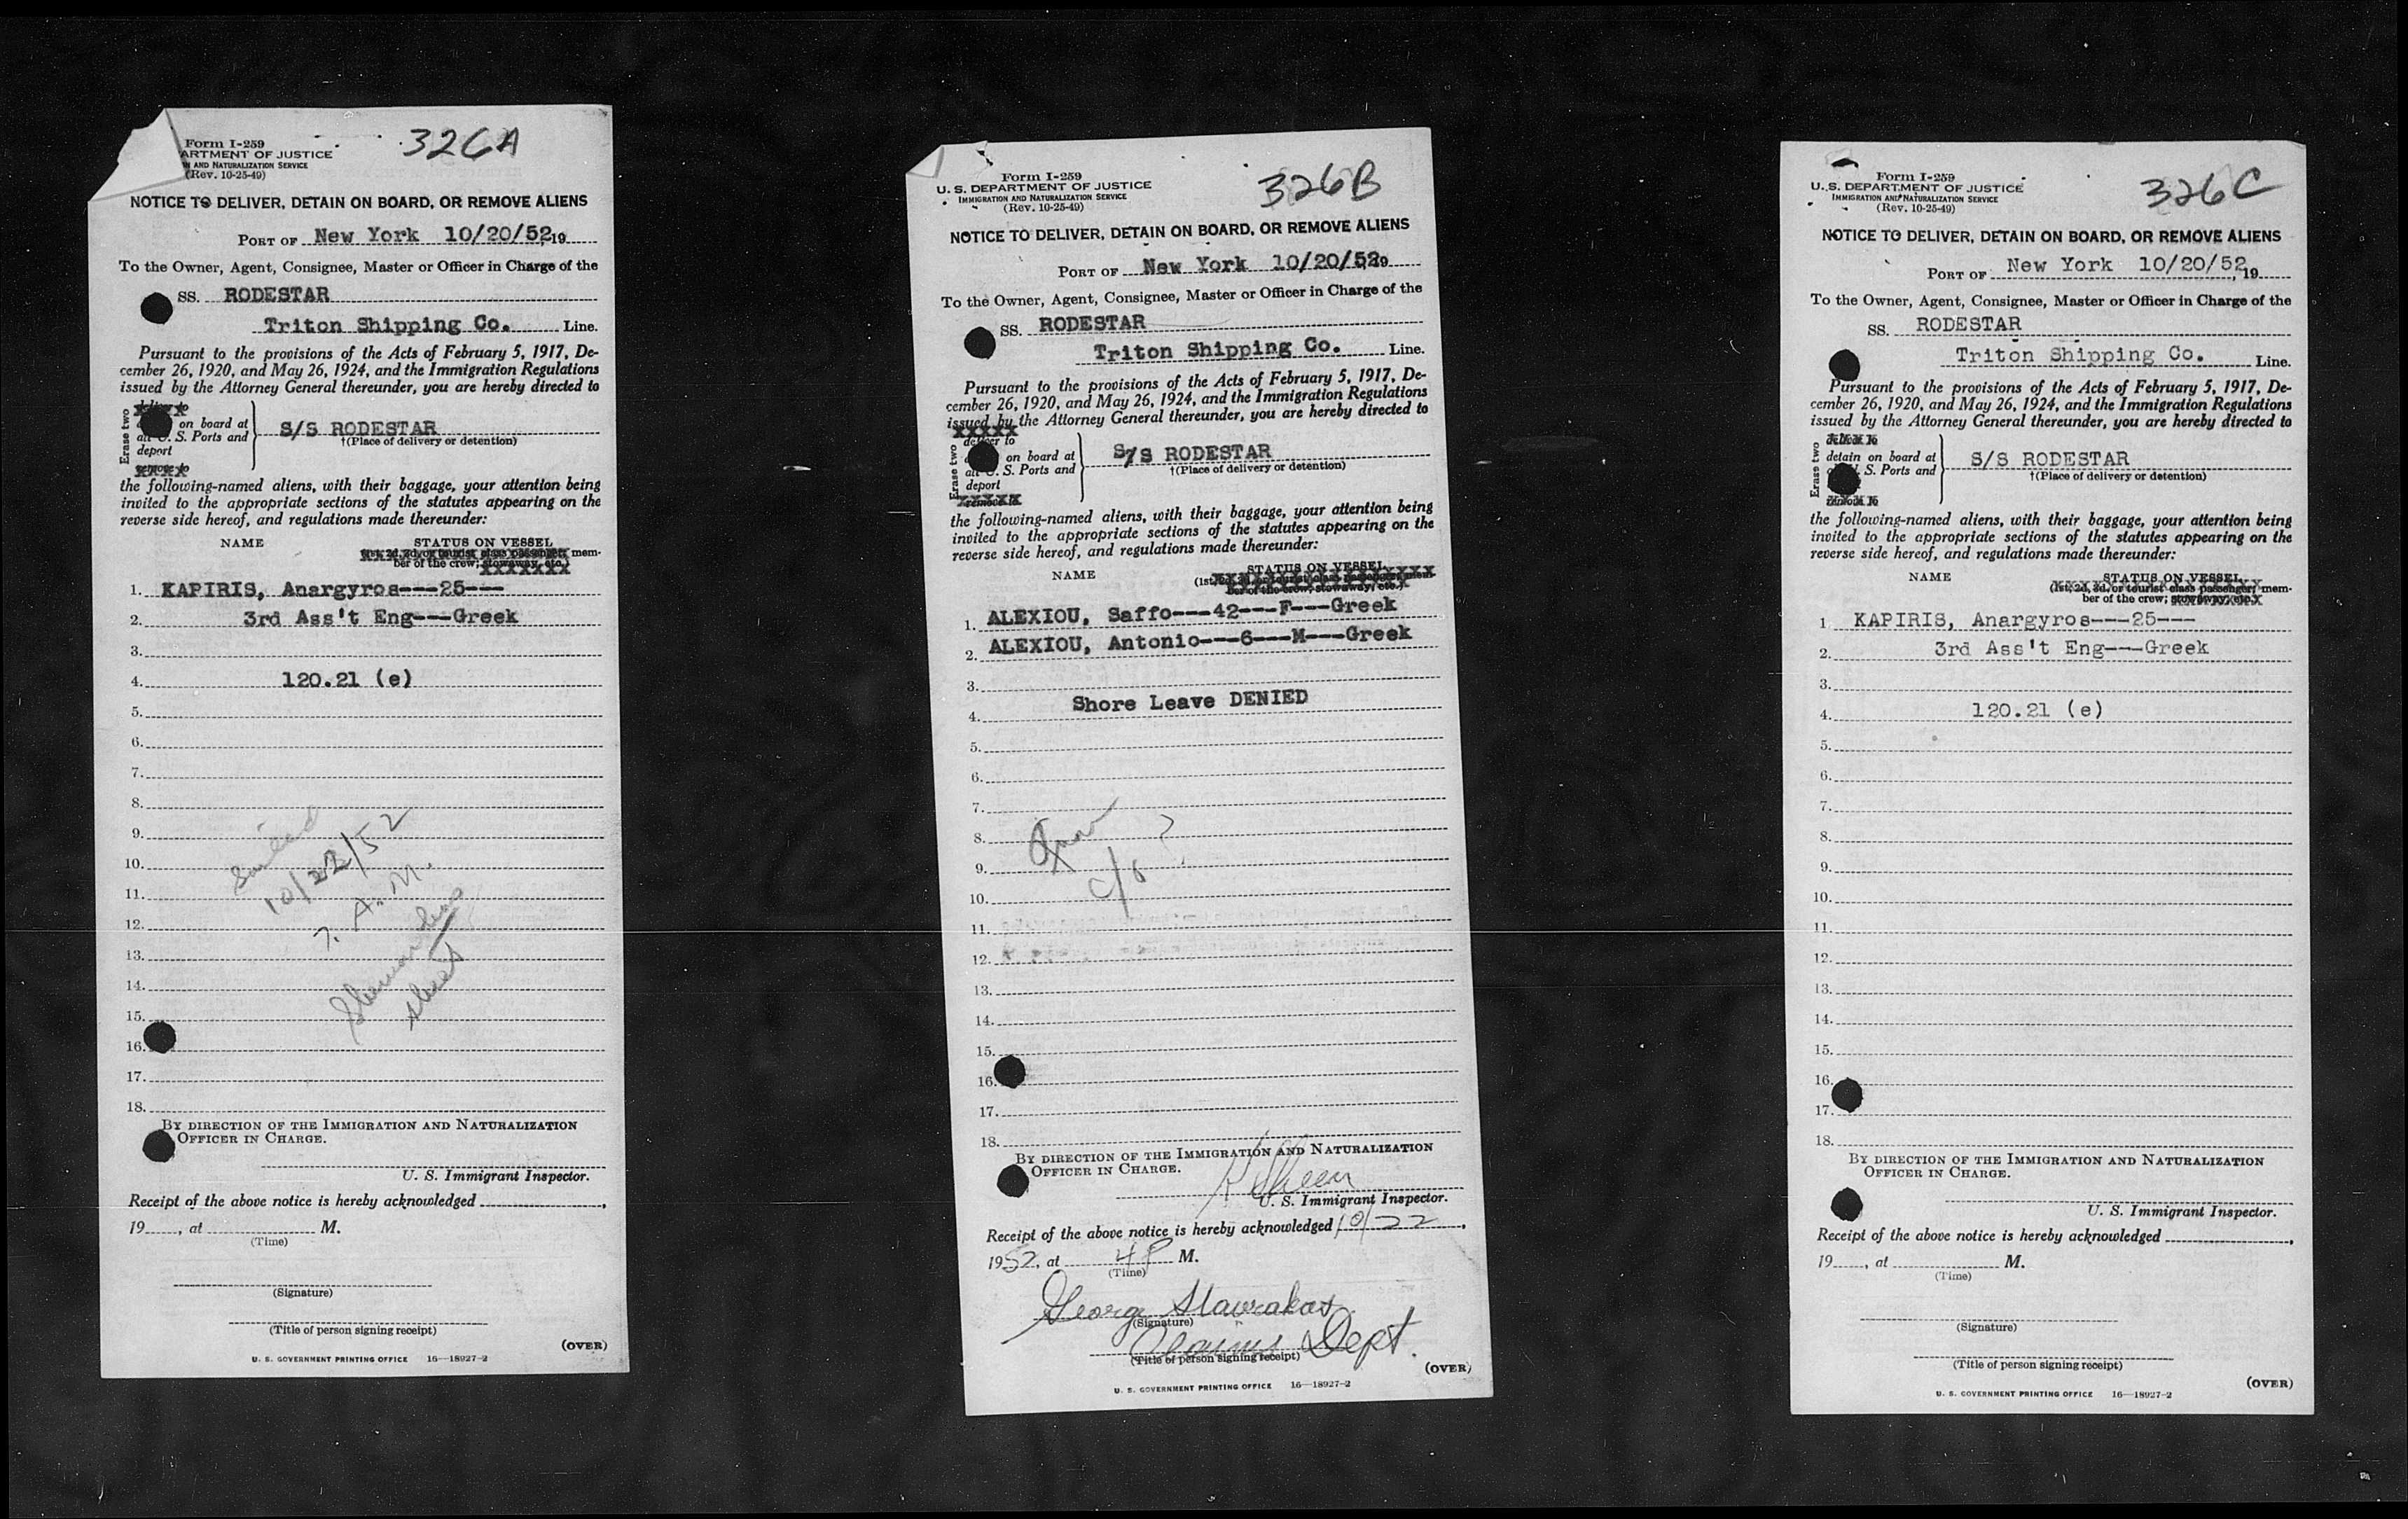 Form I-259
ARTMENT OF JUSTICE
AND NATURALIZATION SERVICE
(Rev. 10-25-49)
326A
NOTICE TO DELIVER, DETAIN ON BOARD, OR REMOVE ALIENS
PORT OF New York 10/20/52, 19
To the Owner, Agent, Consignee, Master or Officer in Charge of the
SS. RODESTAR
Triton Shipping Co. Line.
Pursuant to the provisions of the Acts of February 5, 1917, De-
cember 26, 1920, and May 26, 1924, and the Immigration Regulations
issued by the Attorney General thereunder, you are hereby directed to
Erase two
on board at
all U. S. Ports and
deport
remove to
S/S RODESTAR
†(Place of delivery or detention)
the following-named aliens, with their baggage, your attention being
invited to the appropriate sections of the statutes appearing on the
reverse side hereof, and regulations made thereunder:
NAME STATUS ON VESSEL
(1st, 2d, 3d, or tourist class passenger; mem-
ber of the crew; stowaway, etc.)
1. KAPIRIS, Anargyros---25---
2. 3rd Ass't Eng---Greek
3.
4. 120.21 (e)
5.
6.
7.
8.
9.
10.
11.
12.
13.
14.
15.
16.
17.
18.
Sailed
10/22/52
7. A.M.
BY DIRECTION OF THE IMMIGRATION AND NATURALIZATION
OFFICER IN CHARGE.
U. S. Immigrant Inspector.
Receipt of the above notice is hereby acknowledged
19, at M.
(Time)
(Signature)
(Title of person signing receipt)
(OVER)
U. S. GOVERNMENT PRINTING OFFICE 16—18927-2
Form I-259
U. S. DEPARTMENT OF JUSTICE
IMMIGRATION AND NATURALIZATION SERVICE
(Rev. 10-25-49)
326B
NOTICE TO DELIVER, DETAIN ON BOARD, OR REMOVE ALIENS
PORT OF New York 10/20/52, 19
To the Owner, Agent, Consignee, Master or Officer in Charge of the
SS. RODESTAR
Triton Shipping Co. Line.
Pursuant to the provisions of the Acts of February 5, 1917, De-
cember 26, 1920, and May 26, 1924, and the Immigration Regulations
issued by the Attorney General thereunder, you are hereby directed to
Erase two
deliver to
on board at
all U. S. Ports and
deport
remove to
S/S RODESTAR
†(Place of delivery or detention)
the following-named aliens, with their baggage, your attention being
invited to the appropriate sections of the statutes appearing on the
reverse side hereof, and regulations made thereunder:
NAME STATUS ON VESSEL
(1st, 2d, 3d, or tourist class passenger; mem-
ber of the crew; stowaway, etc.)
1. ALEXIOU, Saffo---42---F---Greek
2. ALEXIOU, Antonio---6---M---Greek
3.
4. Shore Leave DENIED
5.
6.
7.
8.
9.
10.
11.
12.
13.
14.
15.
16.
17.
18.
BY DIRECTION OF THE IMMIGRATION AND NATURALIZATION
OFFICER IN CHARGE.
U. S. Immigrant Inspector.
Receipt of the above notice is hereby acknowledged 10/22,
1952, at 4 P M.
(Time)
George Stavrakas
(Signature)
Claims Dept.
(Title of person signing receipt)
(OVER)
U. S. GOVERNMENT PRINTING OFFICE 16—18927-2
Form I-259
U. S. DEPARTMENT OF JUSTICE
IMMIGRATION AND NATURALIZATION SERVICE
(Rev. 10-25-49)
326C
NOTICE TO DELIVER, DETAIN ON BOARD, OR REMOVE ALIENS
PORT OF New York 10/20/52, 19
To the Owner, Agent, Consignee, Master or Officer in Charge of the
SS. RODESTAR
Triton Shipping Co. Line.
Pursuant to the provisions of the Acts of February 5, 1917, De-
cember 26, 1920, and May 26, 1924, and the Immigration Regulations
issued by the Attorney General thereunder, you are hereby directed to
Erase two
deliver to
detain on board at
all U. S. Ports and
remove to
S/S RODESTAR
†(Place of delivery or detention)
the following-named aliens, with their baggage, your attention being
invited to the appropriate sections of the statutes appearing on the
reverse side hereof, and regulations made thereunder:
NAME STATUS ON VESSEL
(1st, 2d, 3d, or tourist class passenger; mem-
ber of the crew; stowaway, etc.)
1. KAPIRIS, Anargyros---25---
2. 3rd Ass't Eng---Greek
3.
4. 120.21 (e)
5.
6.
7.
8.
9.
10.
11.
12.
13.
14.
15.
16.
17.
18.
BY DIRECTION OF THE IMMIGRATION AND NATURALIZATION
OFFICER IN CHARGE.
U. S. Immigrant Inspector.
Receipt of the above notice is hereby acknowledged
19, at M.
(Time)
(Signature)
(Title of person signing receipt)
(OVER)
U. S. GOVERNMENT PRINTING OFFICE 16—18927-2